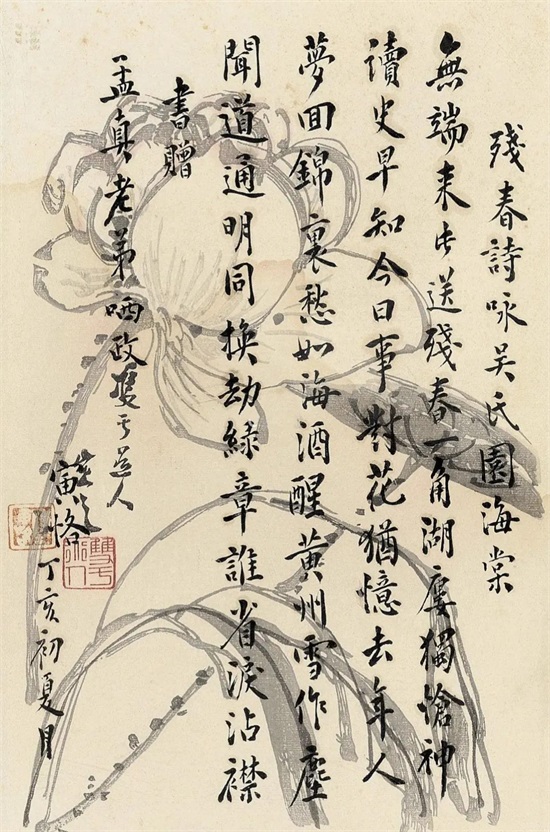 殘春詩咏吴氏園海棠
無端来此送殘春一角湖廔獨愴神
讀史早知今日事對花猶憶去年人
夢回錦裏愁如海酒醒黄州雪作塵
聞道通明同换劫緑章誰省淚沾襟
書贈
孟真老弟哂政道人
寅恪
丁亥初夏月